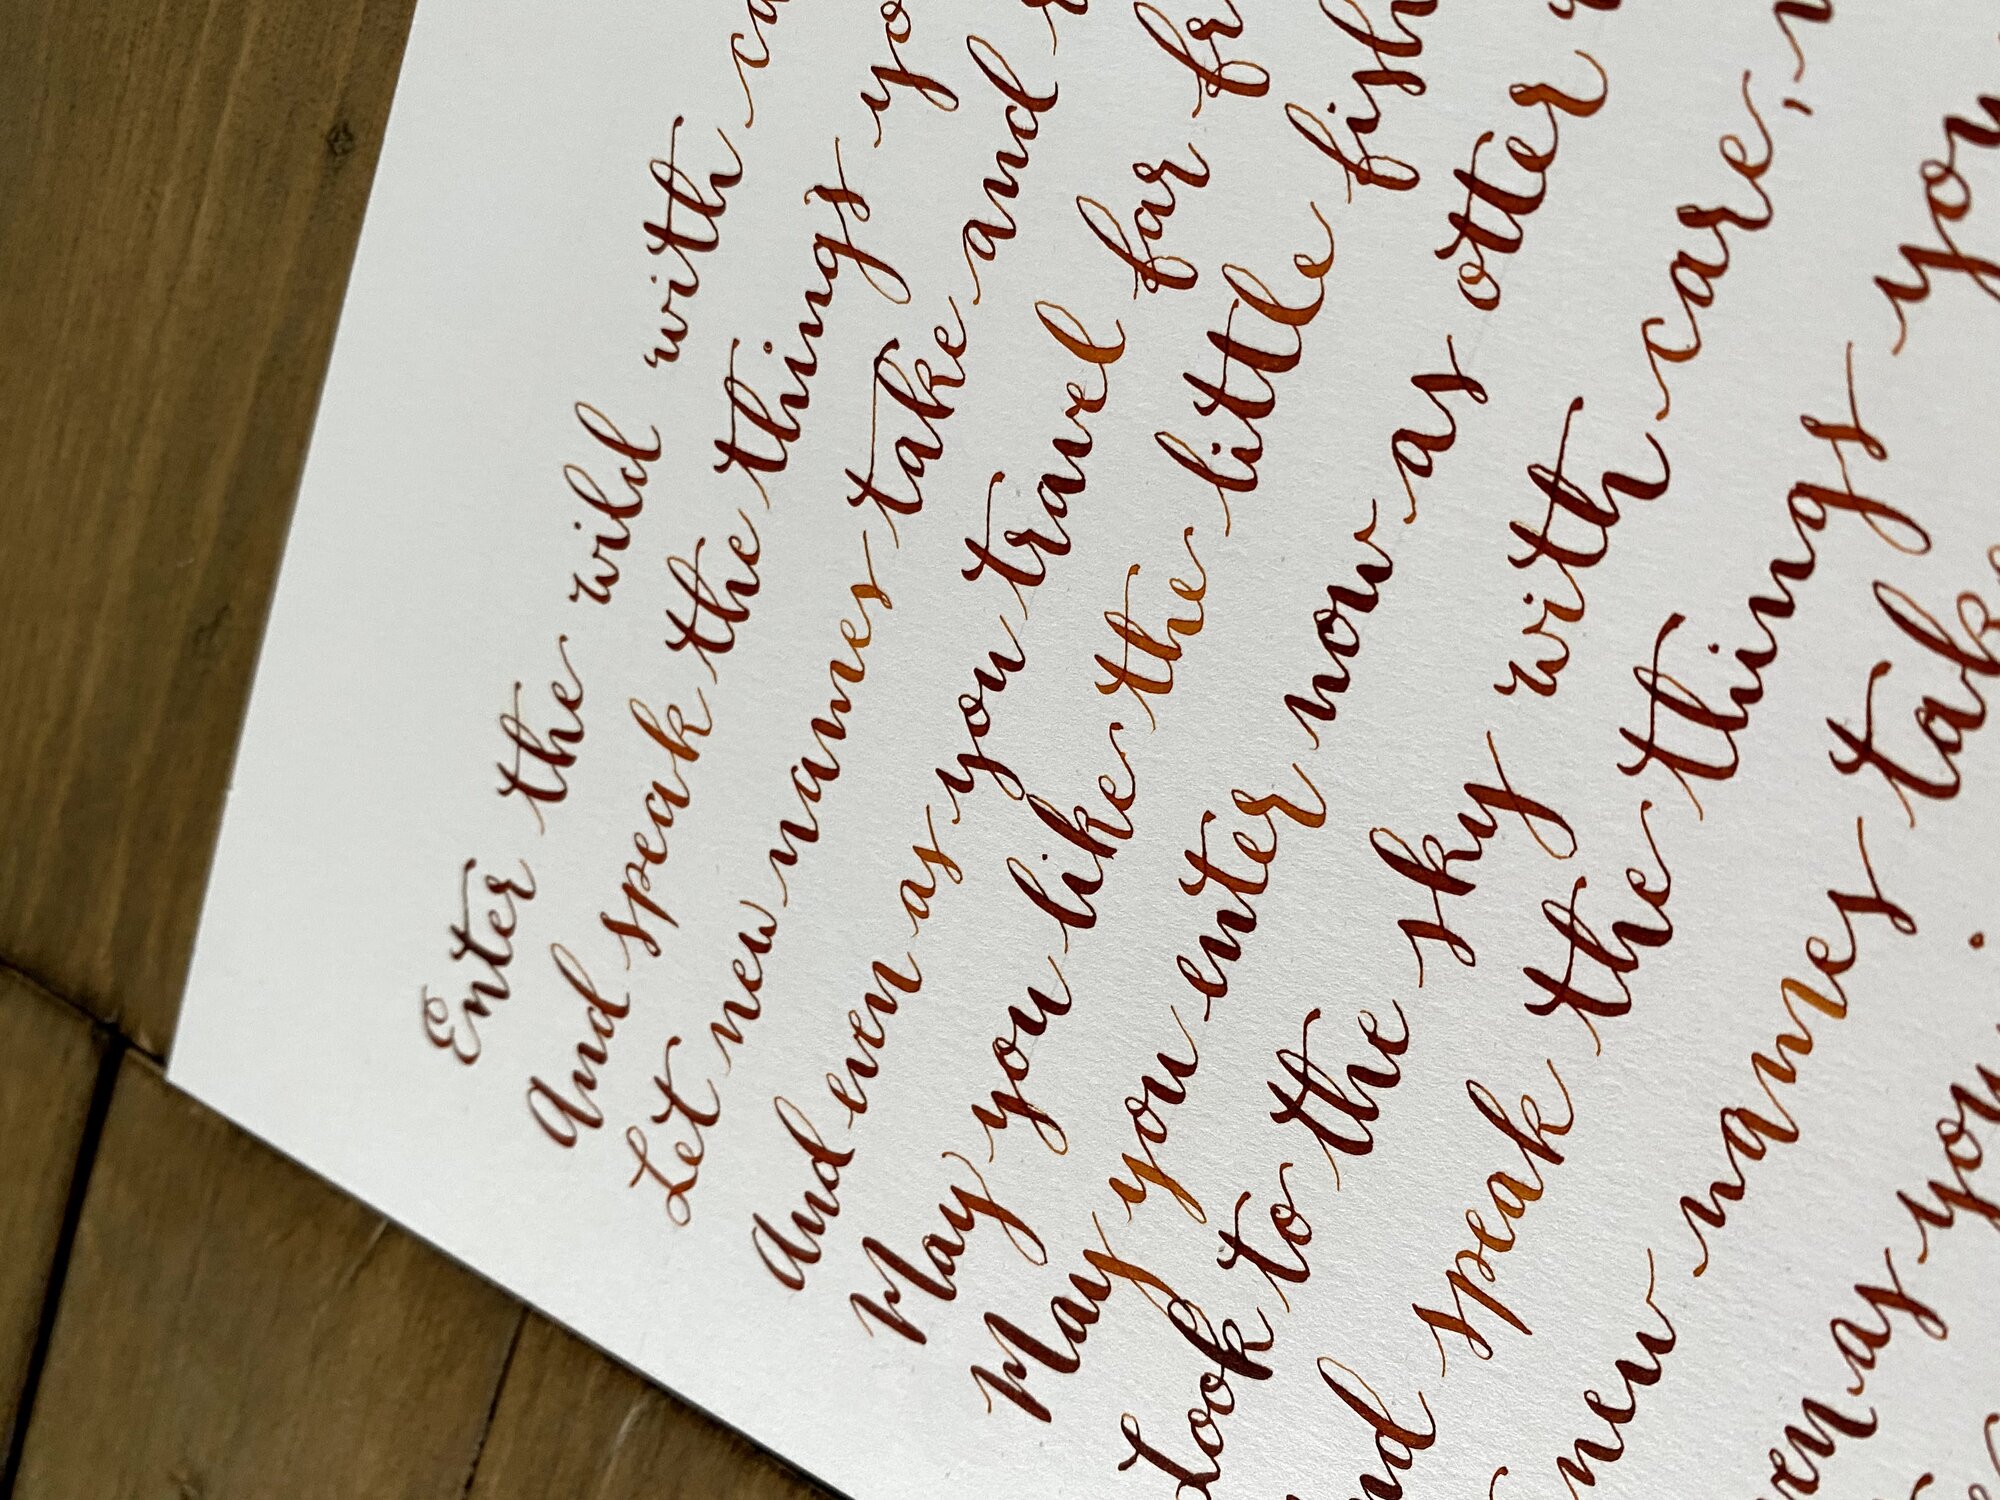 Enter the wild with
And speak the things
Let new names take and
And even as you travel far
May you like the little
May you enter now as otter
Look to the sky with care,
speak the things
new names
as